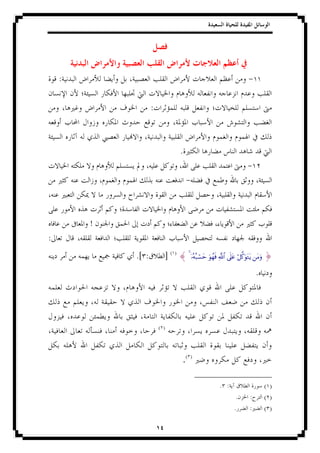 الوسائل المفيدة للحياة السعيدة
فصل
في أعظم العلاجات لأمراض القلب العصبية والأمراض البدنية
١١- ومن أعظم العلاجات لأمراض القلب العصبية، بل وأيضا للأمراض البدنية: قوة
القلب وعدم انزعاجه وانفعاله للأوهام والخيالات التي تجلبها الأفكار السيئة؛ لأن الإنسان
متى استسلم للخيالات؛ وانفعل قلبه للمؤثرات: من الخوف من الأمراض وغيرها، ومن
الغضب والتشوش من الأسباب المؤلمة، ومن توقع حدوث المكاره وزوال المحاب أوقعه
ذلك في الهموم والغموم والأمراض القلبية والبدنية، والانهيار العصبي الذي له آثاره السيئة
التي قد شاهد الناس مضارها الكثيرة.
١٢- ومتى اعتمد القلب على الله، وتوكل عليه، ولم يستسلم للأوهام ولا ملكته الخيالات
السيئة، ووثق بالله وطمع في فضله- اندفعت عنه بذلك الهموم والغموم، وزالت عنه كثير من
الأسقام البدنية والقلبية، وحصل للقلب من القوة والانشراح والسرور ما لا يمكن التعبير عنه،
فكم ملئت المستشفيات من مرضى الأوهام والخيالات الفاسدة؛ وكم أثرت هذه الأمور على
قلوب كثير من الأقوياء، فضلا عن الضعفاء؛ وكم أدت إلى الحمق والجنون! والمعافى من عافاه
الله ووفقه لجهاد نفسه لتحصيل الأسباب النافعة المقوية للقلب؛ الدافعة لقلقه، قال تعالى:
﴿ وَمَن يَتَوَكَّلْ عَلَى ٱللَّهِ فَهُوَ حَسْبُهُۥٓ ﴾ (١) [الطلاق:٣]. أي كافيه جميع ما يهمه من أمر دينه
ودنياه.
فالمتوكل على الله قوي القلب لا تؤثر فيه الأوهام، ولا تزعجه الحوادث لعلمه
أن ذلك من ضعف النفس، ومن الخور والخوف الذي لا حقيقة له، ويعلم مع ذلك
أن الله قد تكفل لمن توكل عليه بالكفاية التامة، فيثق بالله ويطمئن لوعده، فيزول
همه وقلقه، ويتبدل عسره يسرا، وترحه (٢) فرحا، وخوفه أمنا، فنسأله تعالى العافية،
وأن يتفضل علينا بقوة القلب وثباته بالتوكل الكامل الذي تكفل الله لأهله بكل
خير، ودفع كل مكروه وضير (٣).
(١) سورة الطلاق آية: ٣.
(٢) الترح: الحزن.
(٣) الضير: الضرر.
١٤